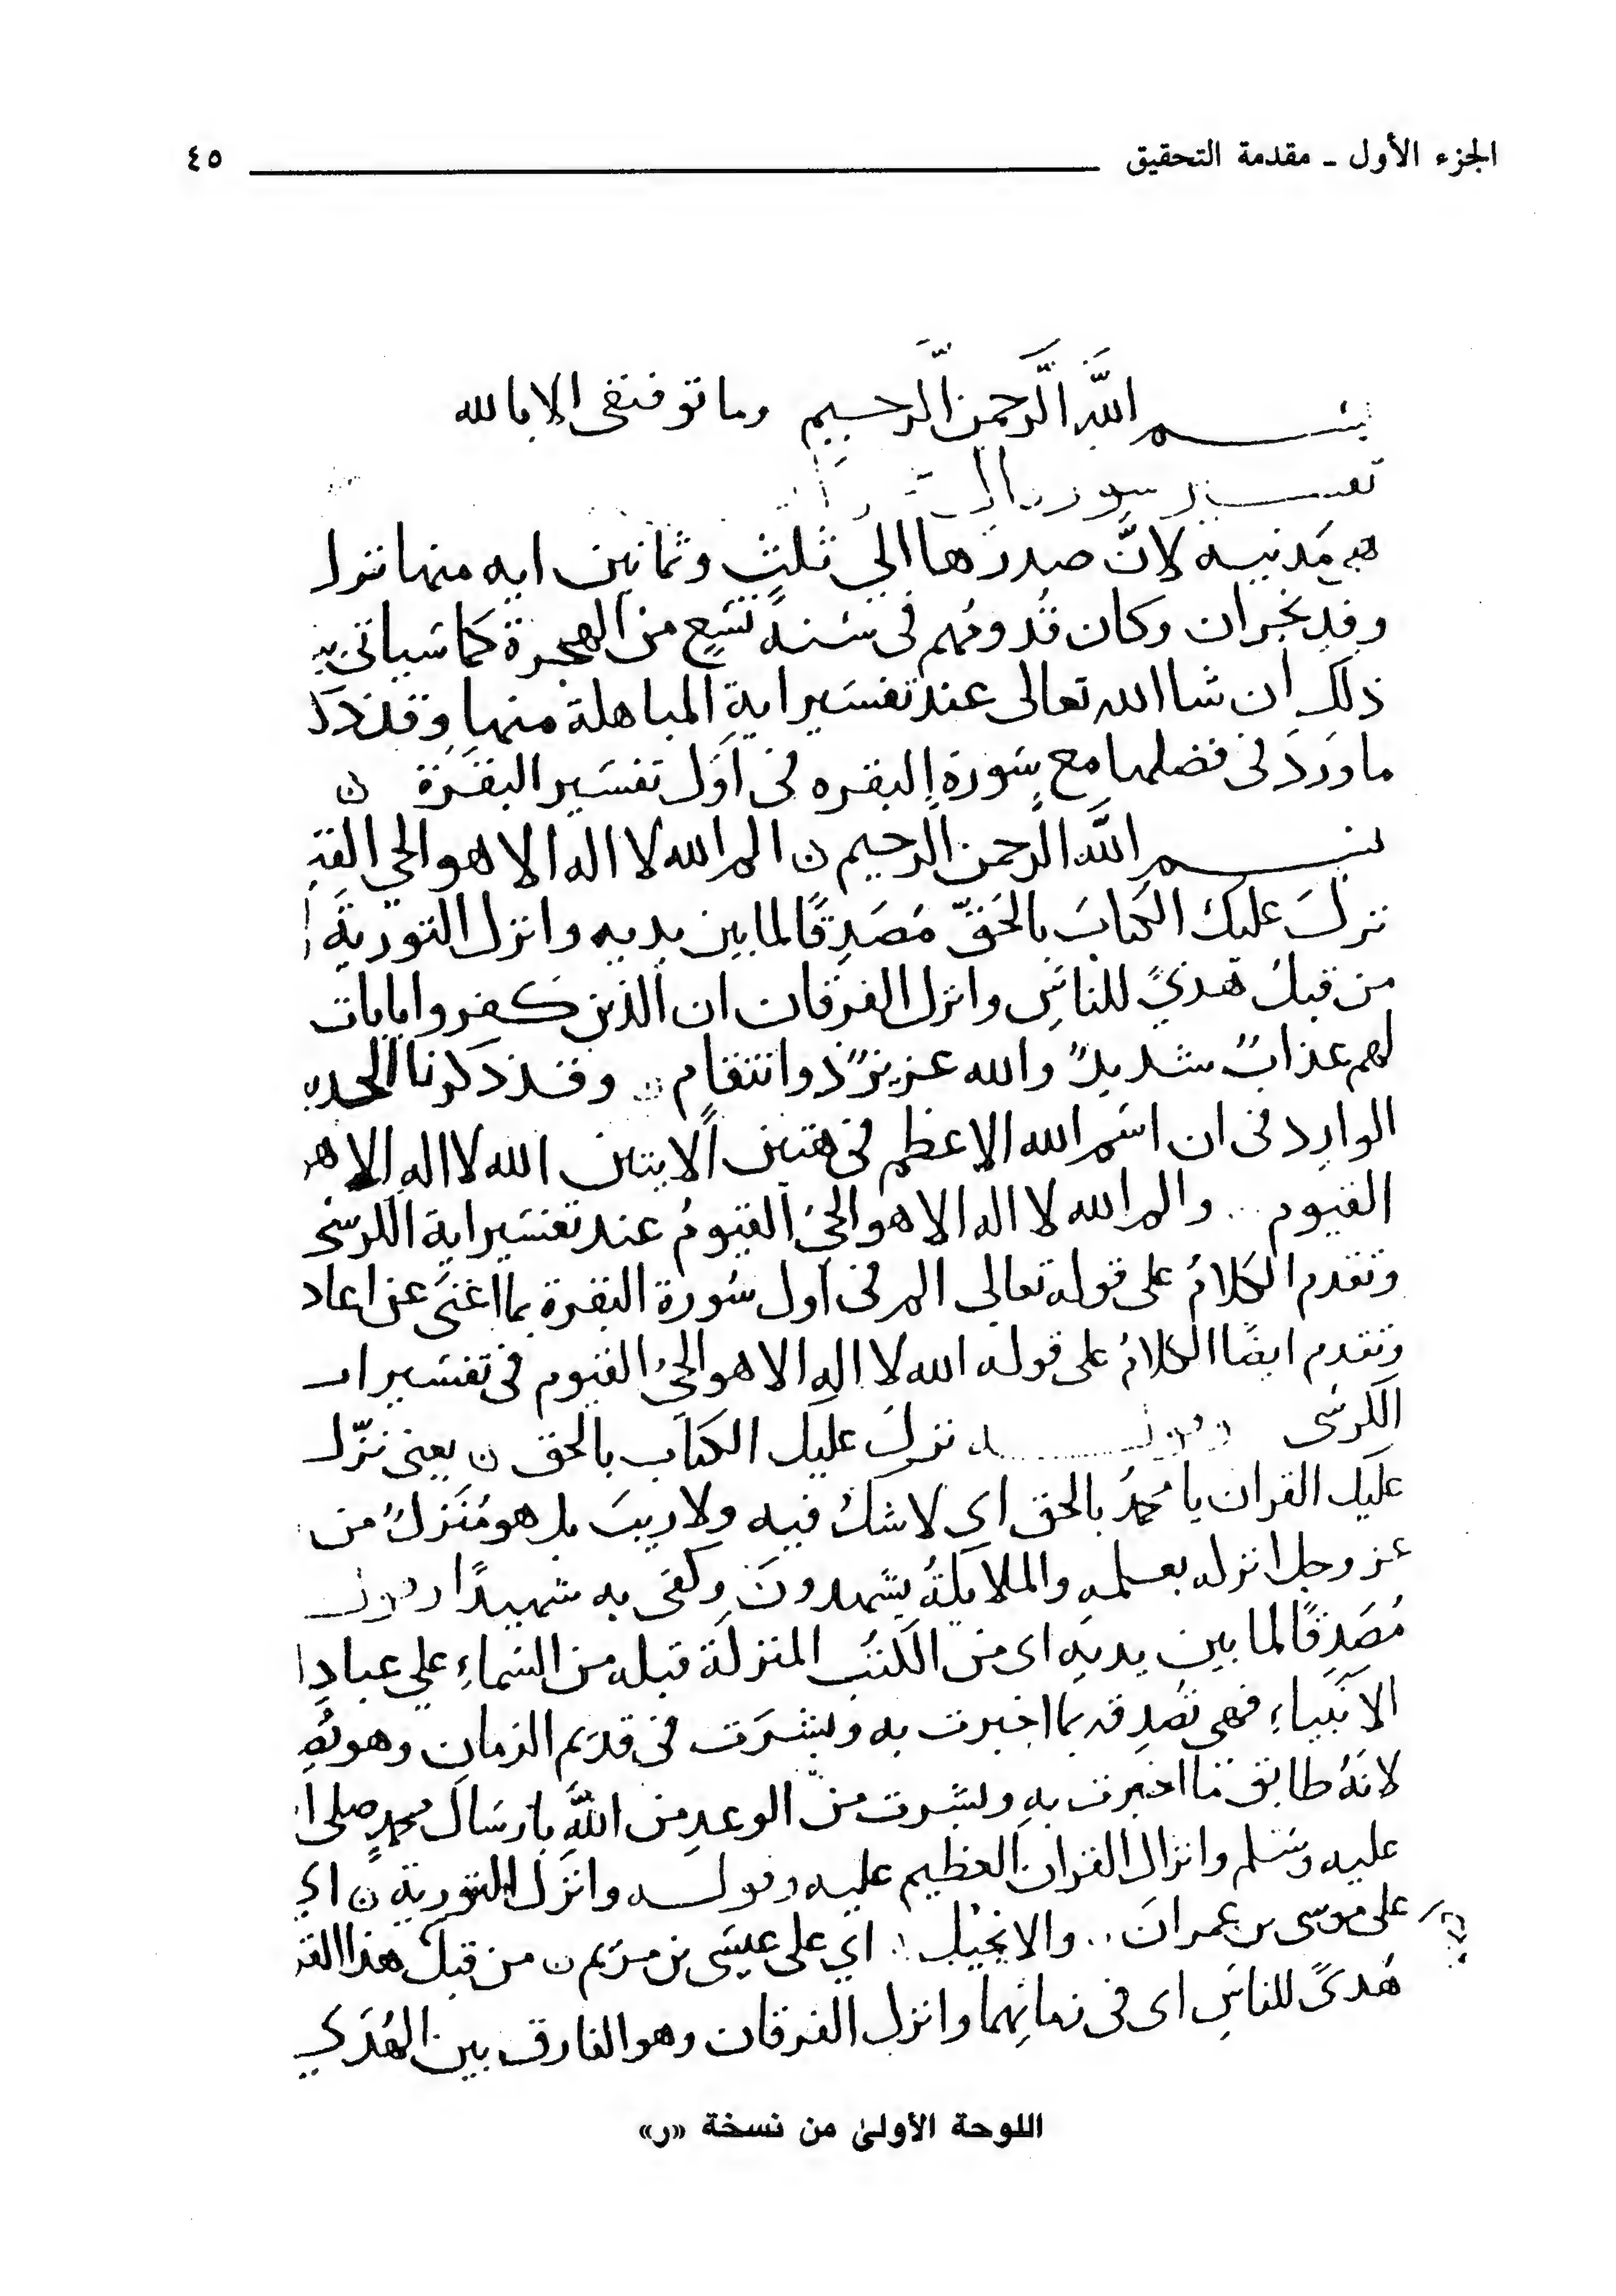 الجزء الأول ـ مقدمة التحقيق ٤٥
بسم اللَّه الرَّحمن الرَّحيم وما توفيقى الا بالله
تفسير سورة ال
هي مَدنيه لانَّ صدرَها الي ثلثٍ وثمانين ايه منها نزل
وفدِ نجران وكان قُدومُهم فى سَنة تسَعٍ من الهجرة كما سَياتى
ذلك ان شا الله تعالى عند تفسَير ايةِ المباهلة منها وقد ذكر
ما ورَدَ فى فضلها مع سُورة البقره فى اوَّل تفسَير البقَرة ن
بسم اللَّه الرَّحمن الرَّحيم ن الم الله لا اله الا هو الحي القيـ
نزلَ عليك الكتابَ بالحَقّ مُصَدِقًا لما بين يديه وانزل التوريةَ
من قبلُ هُديً للناسِ وانزل الفرقان ان الذين كفروا بايات
لهم عذابٌ شديدٌ والله عزيزٌ ذوانتقام ن وقد ذكرنا الحد
الوارد فى ان اسَم الله الاعظم فى هتين الايتين الله لا اله الا هو
القيوم .. والم الله لا اله الا هو الحيُ القيومُ عند تفسَير اية الكرسي
وتقدم الكلامُ على قوله تعالى الم فى اول سُورة البقرة بما اغنَى عن اعاد
وتقدم ايضًا الكلامُ على قوله الله لا اله الا هو الحيُ القيوم فى تفسَير ا
الكرسَى وقوله نزلَ عليك الكتاب بالحق ن يعنى نزّل
عليك القران يا محمدُ بالحق اى لا شك فيه ولا ريبَ بل هو مُنَزلٌ من
عز وجل انزله بعلمه والملايكةُ يشهدونَ وكفى به شهيدًا وقوله
مُصَدِقًا لما بين يديهِ اى من الكتُب المنزلة قبله من السَماءِ علي عبادِ ا
الانبياءِ فهى تصُدِقه بما اخبرت به وبشرَت فى قديم الزمانِ وهو يُصَدِ
لانهُ طابق ما اخبرت به وبشرت من الوعدِ من اللَّهِ بارسَال محمدٍ صلى ا
عليه وسَلم وانزال القران العظيم عليه وقوله وانزَل التورية ن اي
على موسى بن عمرانَ .. والانجيل .. اي على عيسَى بن مرَيم ن من قبلُ هذا القر
هُدىً للناسِ اى فى زمانِهما وانزل الفرقان وهو الفارق بين الهُدَي
اللوحة الأولىٰ من نسخة «ر»